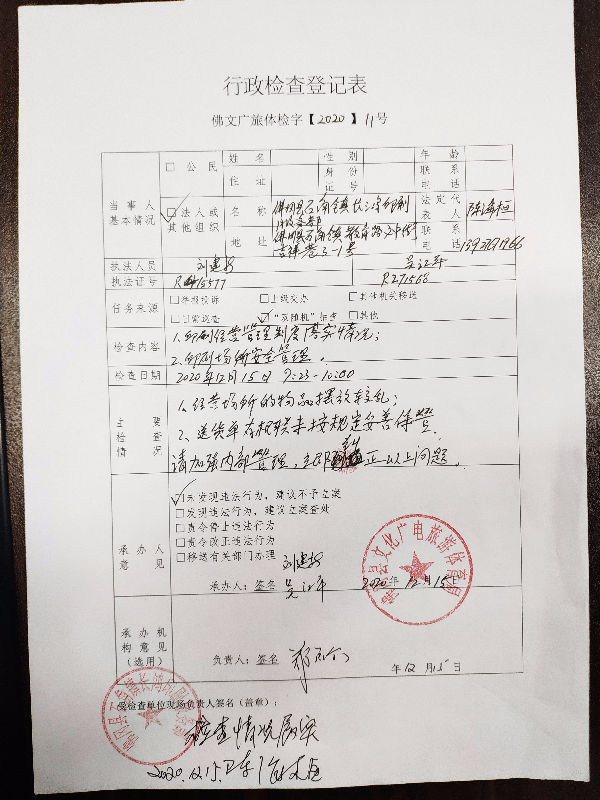 行政检查登记表
佛文广旅体检字【2020】11号
当事人基本情况
□公民 姓名 性别 年龄
住址 身份证号 联系电话
□法人或其他组织 名称 佛冈县石角镇长 印刷 法定代表人 陈 桓
地址 佛冈县石角镇教育路 吉祥巷3-1号 联系电话
执法人员 刘建 吴江华
执法证号 R271568
任务来源 □举报投诉 □上级交办 □其他机关移送
□日常巡查 ☑“双随机”抽查 □其他
检查内容 1.印刷经营管理制度落实情况；
2.印刷场所安全管理。
检查日期 2020年12月15日 9:23-10:00
主要检查情况 1、经营场所的物品摆放较乱；
2、送货单存根联未按规定妥善保管。
请加强内部管理，立即 正以上问题。
承办人意见 ☑未发现违法行为，建议不予立案
□发现违法行为，建议立案查处
□责令停止违法行为
□责令改正违法行为
□移送有关部门办理
承办人：签名 刘建 吴江华 2020年12月15日
佛冈县文化广电旅游体育局
承办机构意见（选用）
负责人：签名 郑 年12月15日
受检查单位现场负责人签名（盖章）：
检查情况属实
2020.12.15